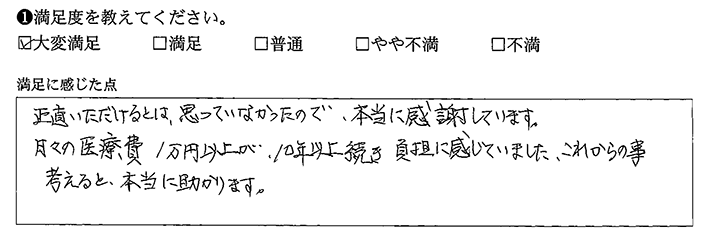 ❶満足度を教えてください。
☑大変満足 □満足 □普通 □やや不満 □不満
満足に感じた点
正直いただけるとは、思っていなかったので、本当に感謝しています。
月々の医療費 1万円以上が、10年以上続き 負担に感じていました、これからの事
考えると、本当に助かります。